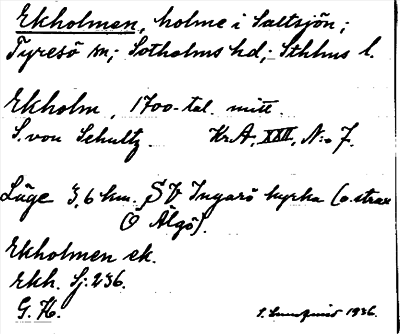 Ekholmen, holme i Saltsjön;
Tyresö sn; Sotholms hd; Sthlms l.
Ekholm, 1700-tal. mitt.
S. von Schultz. Kr.A, XXII, N:o 7.
Läge 3,6 km. SV Ingarö kyrka (o. strax
O Älgö).
Ekholmen ek.
Ekh. Sj. 236.
G. H.
1936.